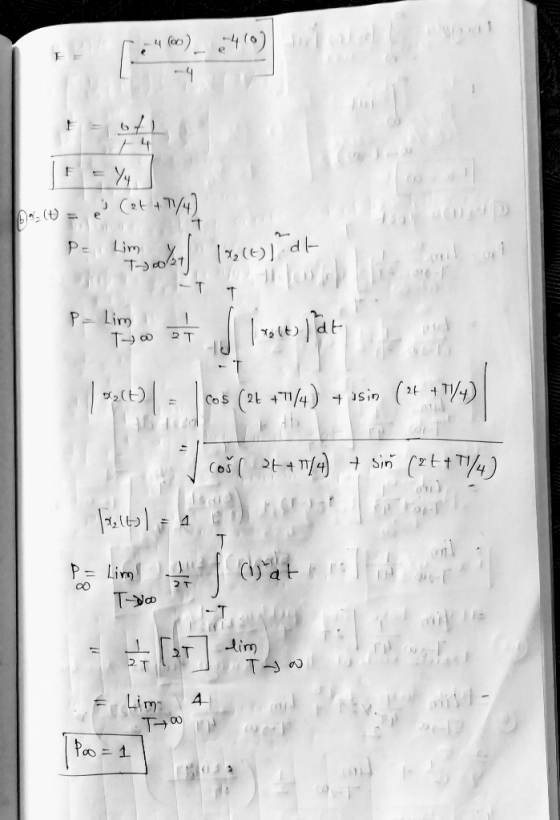 E = [ (e^-4(∞) - e^-4(0)) / -4 ]
E = (0 - 1) / -4
E = 1/4
(b) x₂(t) = e^j (2t + π/4)
P = Lim T→∞ 1/2T ∫_{-T}^{T} |x₂(t)|² dt
P = Lim T→∞ 1/2T ∫_{-T}^{T} |x₂(t)|² dt
|x₂(t)| = |cos (2t + π/4) + jsin (2t + π/4)|
= √(cos² (2t + π/4) + sin² (2t + π/4))
|x₂(t)| = 1
P∞ = Lim T→∞ 1/2T ∫_{-T}^{T} (1)² dt
= 1/2T [2T] lim T→∞
= Lim T→∞ 1
P∞ = 1